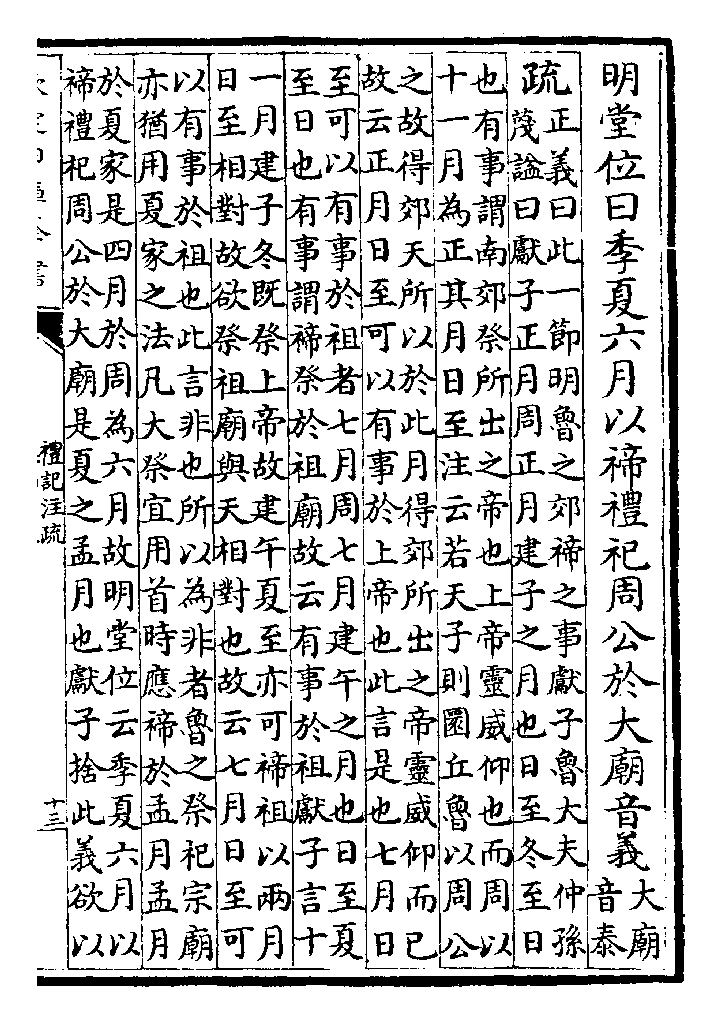 明堂位曰季夏六月以禘禮祀周公於大廟音義大廟
音泰
疏正義曰此一節明魯之郊禘之事獻子魯大夫仲孫
蔑謚曰獻子正月周正月建子之月也日至冬至日
也有事謂南郊祭所出之帝也上帝靈威仰也而周以
十一月為正其月日至注云若天子則圜丘魯以周公
之故得郊天所以於此月得郊所出之帝靈威仰而已
故云正月日至可以有事於上帝也此言是也七月日
至可以有事於祖者七月周七月建午之月也日至夏
至日也有事謂禘祭於祖廟故云有事於祖獻子言十
一月建子冬既祭上帝故建午夏至亦可禘祖以兩月
日至相對故欲祭祖廟與天相對也故云七月日至可
以有事於祖也此言非也所以為非者魯之祭祀宗廟
亦猶用夏家之法凡大祭宜用首時應禘於孟月孟月
於夏家是四月於周為六月故明堂位云季夏六月以
禘禮祀周公於大廟是夏之孟月也獻子捨此義欲以
禮記注疏
十三